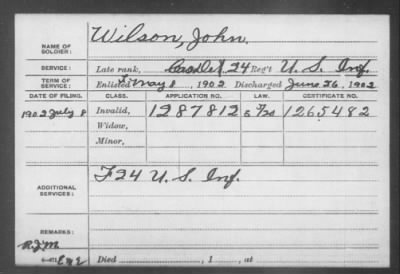 NAME OF SOLDIER: Wilson, John.
SERVICE: Late rank, 24 Reg't U. S. Inf.
TERM OF SERVICE: Enlisted May 8, 1902 Discharged June 26, 1902
DATE OF FILING. CLASS. APPLICATION NO. LAW. CERTIFICATE NO.
1902 July 8 Invalid, 1287812 1265482
Widow,
Minor,
ADDITIONAL SERVICES: F 24 U. S. Inf.
REMARKS:
R.J.M.
Died , 1 , at